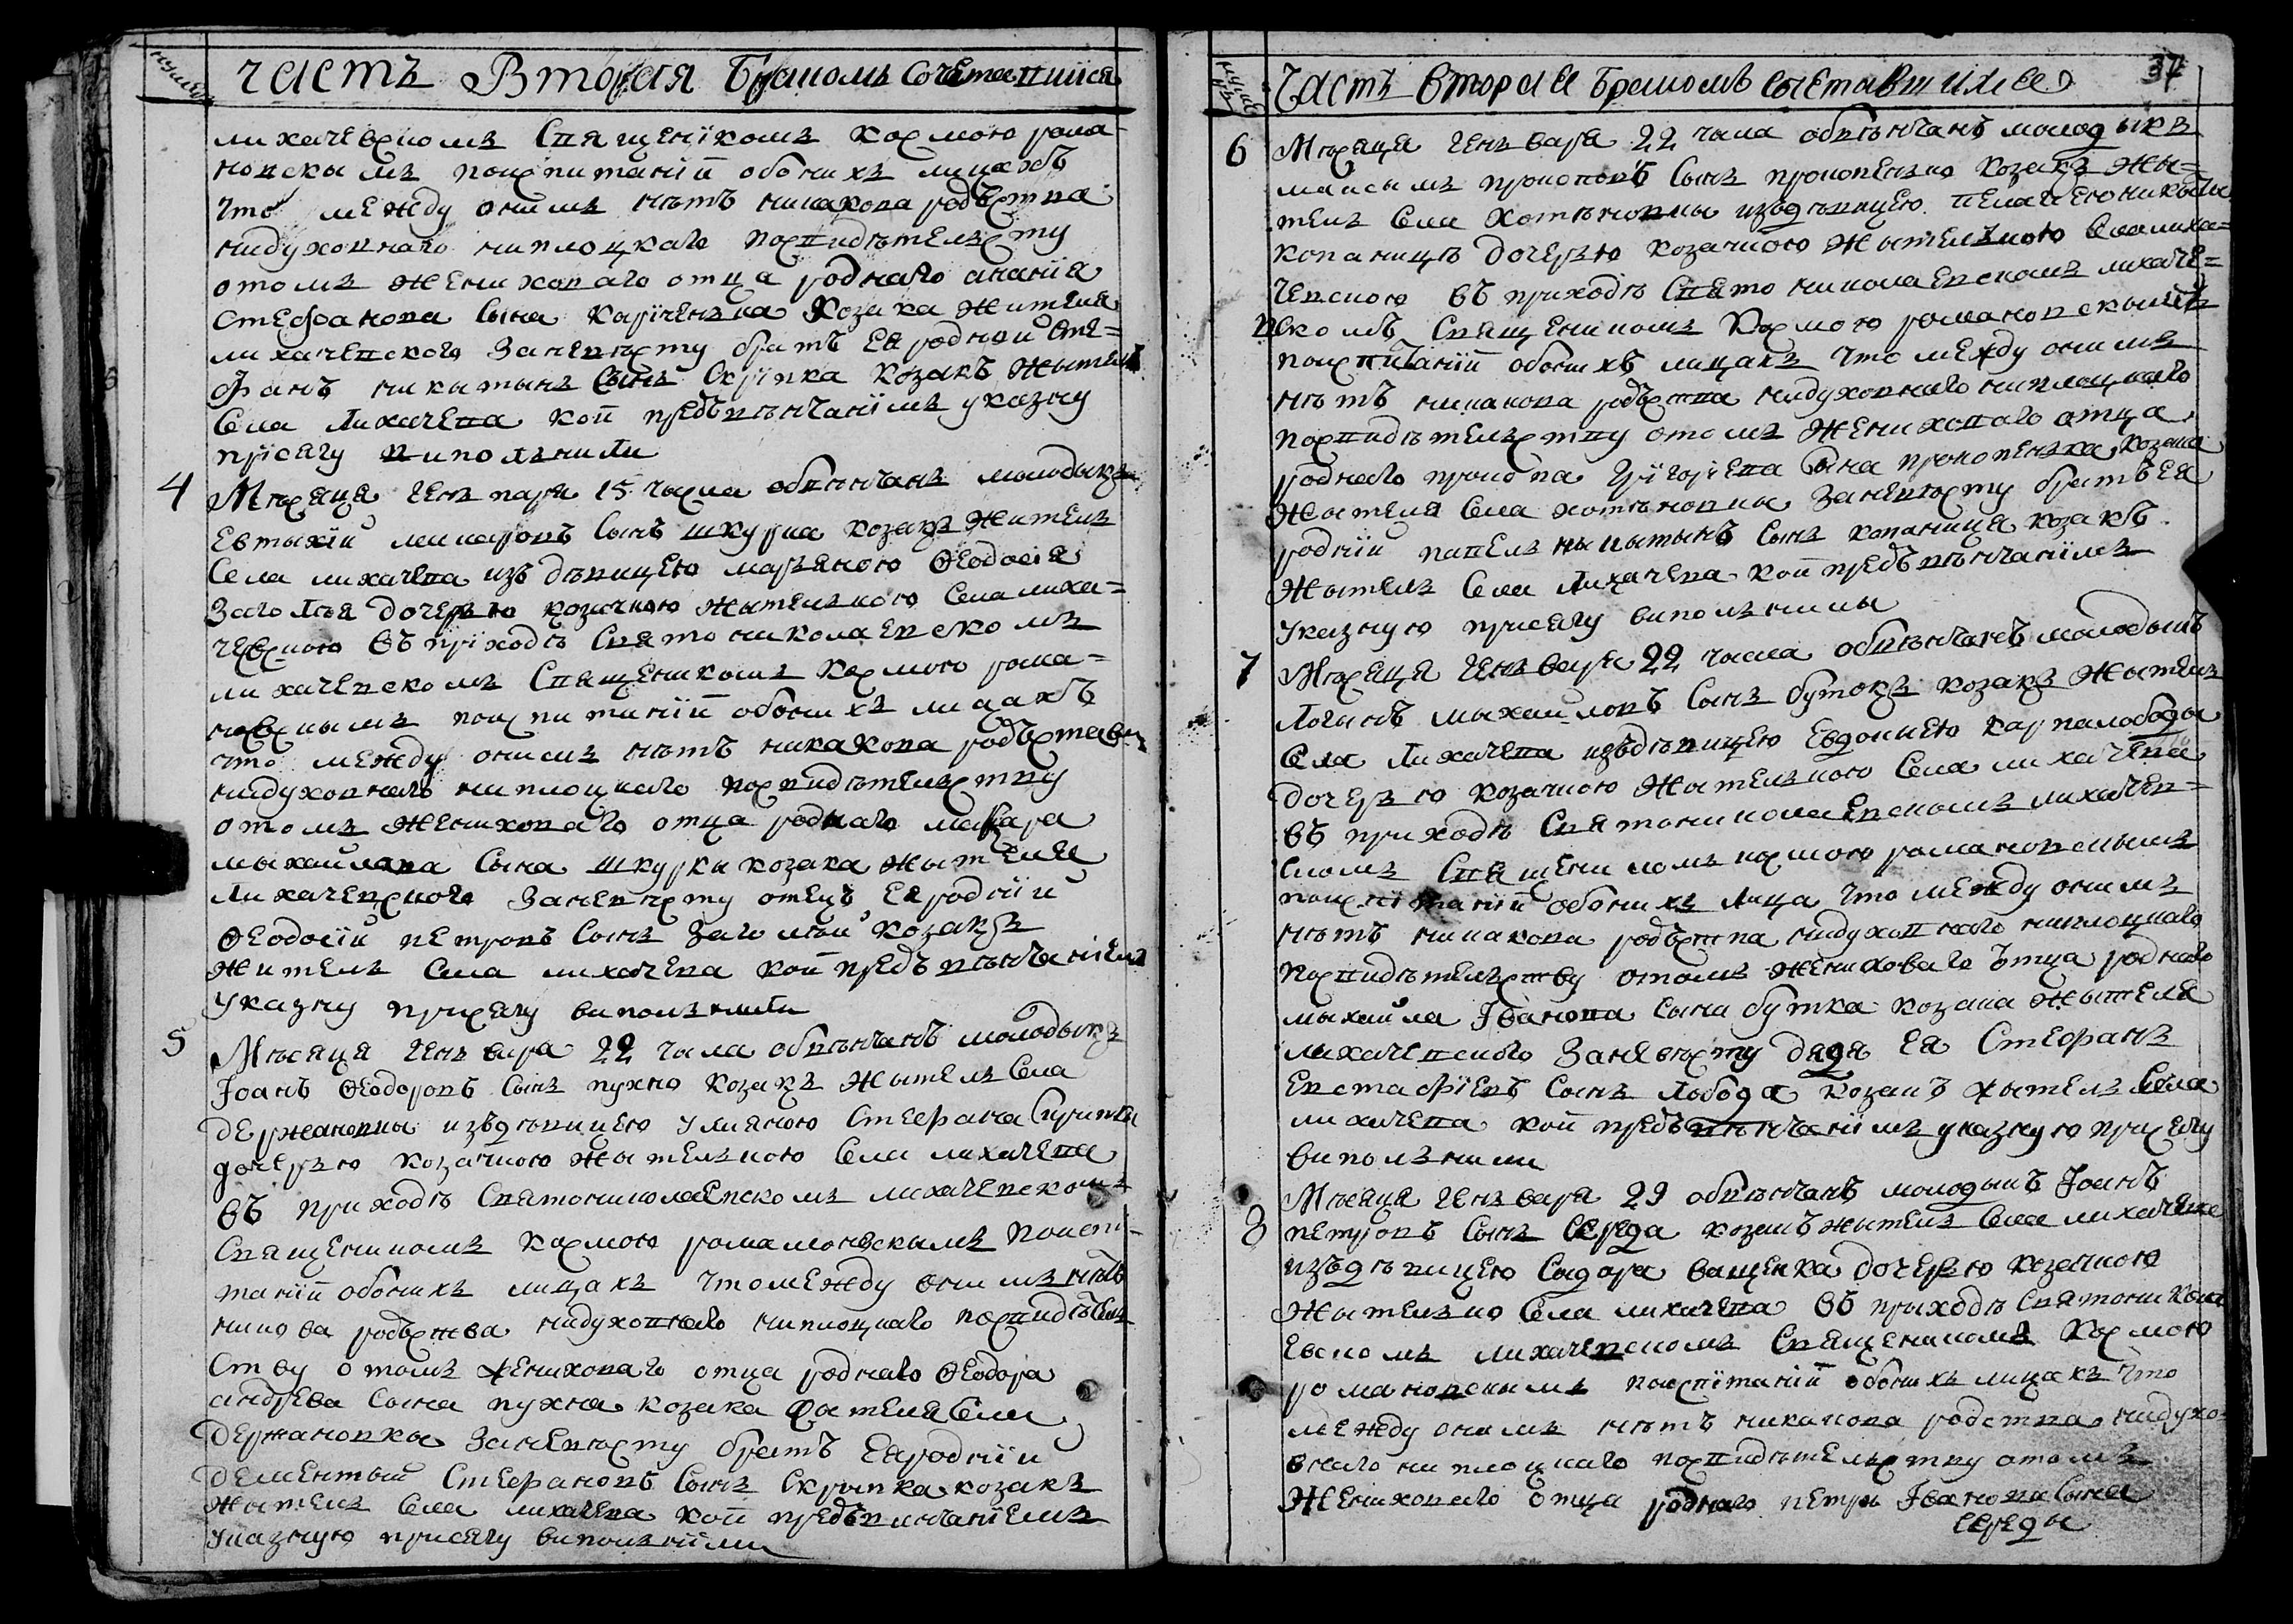 часть Вторая Бракомъ Сочетавшихся
лихачевскомъ Священикомъ Космою рома-
новскымъ поиспитаніи обоихъ лицахъ
что между онимъ нѣтъ никакова родъства
нидуховнаго ниплоцкаго посвидѣтелству
отомъ жениховаго отца роднаго ананія
Стефанова Сына Козака жителя
лихачевского Заневѣсту братъ Ея родной Сте-
фанъ никытынъ Сынъ Скрипка козакъ жытель
Села Лихачева кои предъвѣнчаніемъ указну
прісягу виполънили
4 Мѣсяця Генъваря 15 числа обвѣнчанъ молодыкъ
Евтыхій макаровъ Сынъ шкурка козакъ житель
Села лихачева изъ дѣвицею марьяною Ѳеодосія
дочерью козачкою жытелкою Села лиха-
чевского въ приходѣ Святониколаевскомъ
лихачевскомъ Священикомъ Космою рома-
новскымъ поиспитаніи обоихъ лицахъ
что между онимъ нѣтъ никакова родъства
нидуховнаго ниплоцкаго посвидѣтелству
отомъ жениховаго отца роднаго макара
мыхайлова Сына шкурки козака жытеля
Лихачевского Заневѣсту отецъ Ея родній
Ѳеодосій петровъ Сынъ козакъ
житель Села лихачева кои предъ вѣнчаніемъ
указну присягу виполънили
5 Мѣсяця Генъваря 22 числа обвѣнчанъ молодыкъ
Іоанъ Ѳеодоровъ Сынъ пухно козакъ жытель Села
держановкы изъдѣвицею уляною Стефана Скрипкы
дочерью козачкою жытелкою Села лихачева
въ приходѣ Святониколаевскомъ лихачевскомъ
Священикомъ Космою романовскымъ поиспи-
таніи обоихъ лицахъ что между онимъ нѣтъ
никова родъства нидуховнаго ниплоцкаго посвидѣтел
ству отомъ жениховаго отца роднаго Ѳеодора
андрѣева Сына пухна козака жытеля Села
держановкы Заневѣсту братъ Ея родній
дементый Стефановъ Сынъ Скрыпка козакъ
жытель Села лихачева кои предъвѣнчаніемъ
указную присягу виполънили
Часть вторая Бракомъ Сочетавшихся 37
6 Мѣсяця Генъваря 22 числа обвѣнчанъ молодыкъ
максымъ прокоповъ Сынъ прокопенко козакъ жы-
тель Села хотѣновкы изъдѣвицею пелагеею никыты
копаницѣ дочерью козачкою жытелкою Села лиха-
чевского въ приходѣ Святониколаевскомъ лихаче-
вскомъ Священикомъ Космою романовскымъ
поиспитаніи обоихъ лицахъ что между онимъ
нѣтъ никакова родъства нидуховнаго ниплоцкаго
посвидѣтелству отомъ жениховаго отца
роднаго прокопа Григоріева Сына прокопенка козака
жытеля Села хотѣновкы Заневѣсту братъ Ея
родній павелъ никытынъ Сынъ копаниця козакъ
жытель Села Лихачева кои предъвѣнчаніемъ
указную присягу виполънилы
7 Мѣсяця Генъваря 22 числа обвѣнчанъ молодыкъ
Логынъ мыхайловъ Сынъ бутокъ козакъ жытель
Села Лихачева изъдѣвицею Евдокиею карпа лободы
дочерью козачкою жытелкою Села лихачева
въ приходѣ Святониколаевскомъ лихачев-
скомъ Священикомъ космою романовскымъ
поиспитаніи обоихъ лица что между онимъ
нѣтъ никакова родъства нидуховнаго ниплоцкаго
посвидѣтелству отомъ жениховаго отца роднаго
мыхайла Іванова Сына бутка козака жытеля
лихачевского Заневѣсту дядя Ея Стефанъ
Евстафіевъ Сынъ лобода козакъ жытель Села
лихачева кои предъвѣнчаніемъ указную присягу
виполънили
8 Мѣсяця Генъваря 29 обвѣнчанъ молодыкъ Іоанъ
петровъ Сынъ Середа козакъ жытель Села лихачева
изъдѣвицею Сидора ващенка дочерью козачкою
жытелко Села лихачева въ прыходѣ Святоникола
евскомъ лихачевскомъ Священикомъ Космою
романовскимъ поиспітаніи обоихъ лицахъ что
между онимъ нѣтъ никакова родства нидухо-
внаго ниплоцкаго посвидѣтелству отомъ
жениховаго отца роднаго петра Іванова Сына
Середы